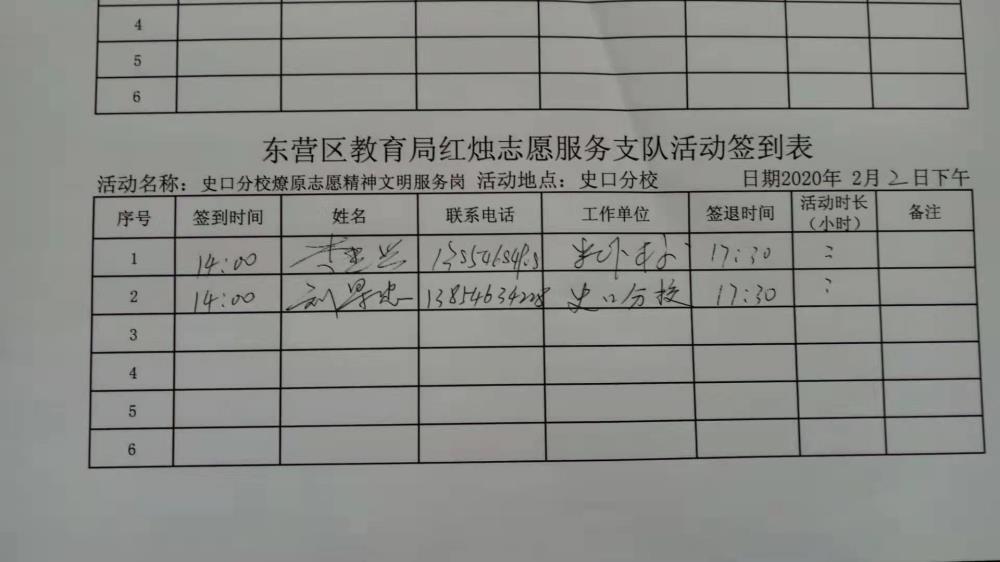 4
5
6
东营区教育局红烛志愿服务支队活动签到表
活动名称：史口分校燎原志愿精神文明服务岗 活动地点：史口分校 日期2020年 2月 2 日下午
序号 签到时间 姓名 联系电话 工作单位 签退时间 活动时长（小时） 备注
1 14:00 17:30
2 14:00 史口分校 17:30
3
4
5
6